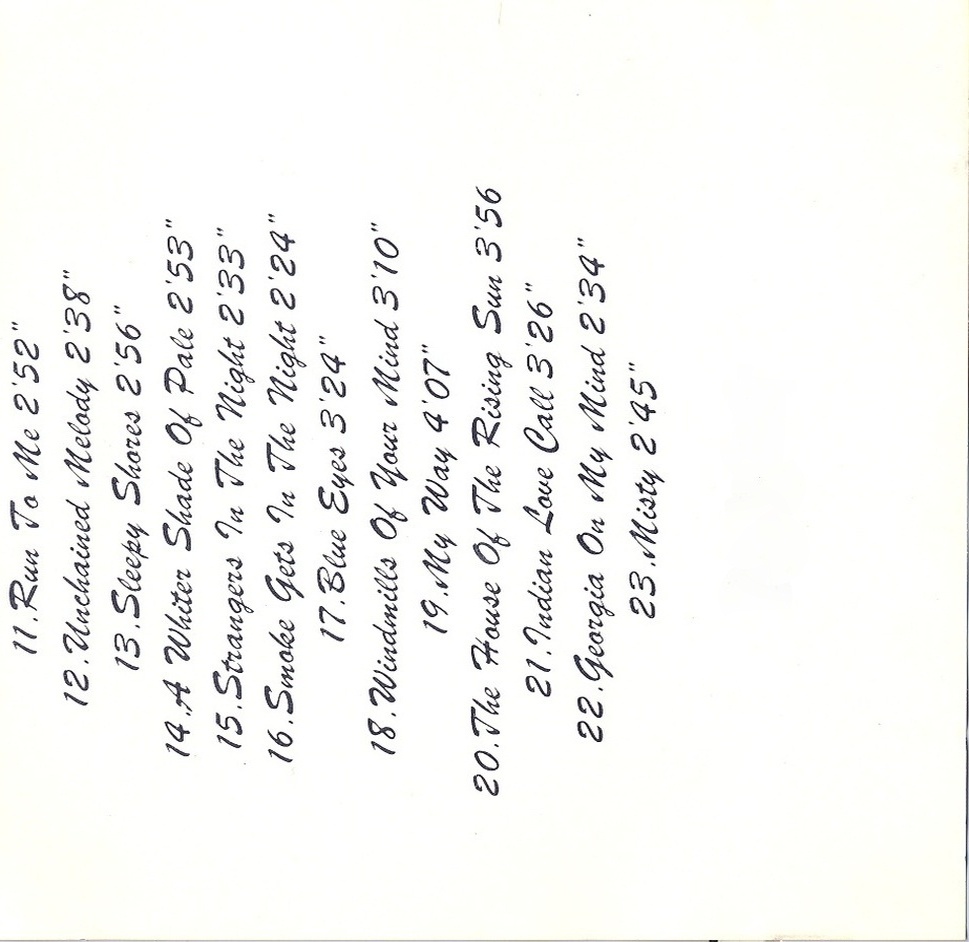 11.Run To Me 2'52"
12.Unchained Melody 2'38"
13.Sleepy Shores 2'56"
14.A Whiter Shade Of Pale 2'53"
15.Strangers In The Night 2'33"
16.Smoke Gets In The Night 2'24"
17.Blue Eyes 3'24"
18.Windmills Of Your Mind 3'10"
19.My Way 4'07"
20.The House Of The Rising Sun 3'56
21.Indian Love Call 3'26"
22.Georgia On My Mind 2'34"
23.Misty 2'45"